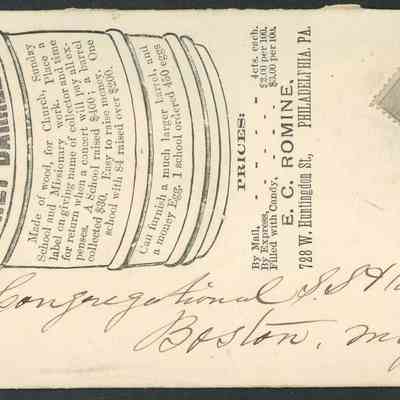 Made of wood, for Church, Sunday
School and Missionary work. Place a
label on giving name of collector and time
for return when a concert will pay all ex-
penses. A School raised $400; a barrel
collected $30. Easy to raise money. One
school with 84 raised over $200.
Can furnish a much larger barrel, and
a money Egg. 1 school ordered 450 eggs
PRICES:
By Mail, - - - 4cts. each.
By Express, - - $2.00 per 100.
Filled with Candy, - $3.00 per 100.
E. C. ROMINE,
728 W. Huntingdon St., PHILADELPHIA, PA.
Congregational S.S.
Boston,